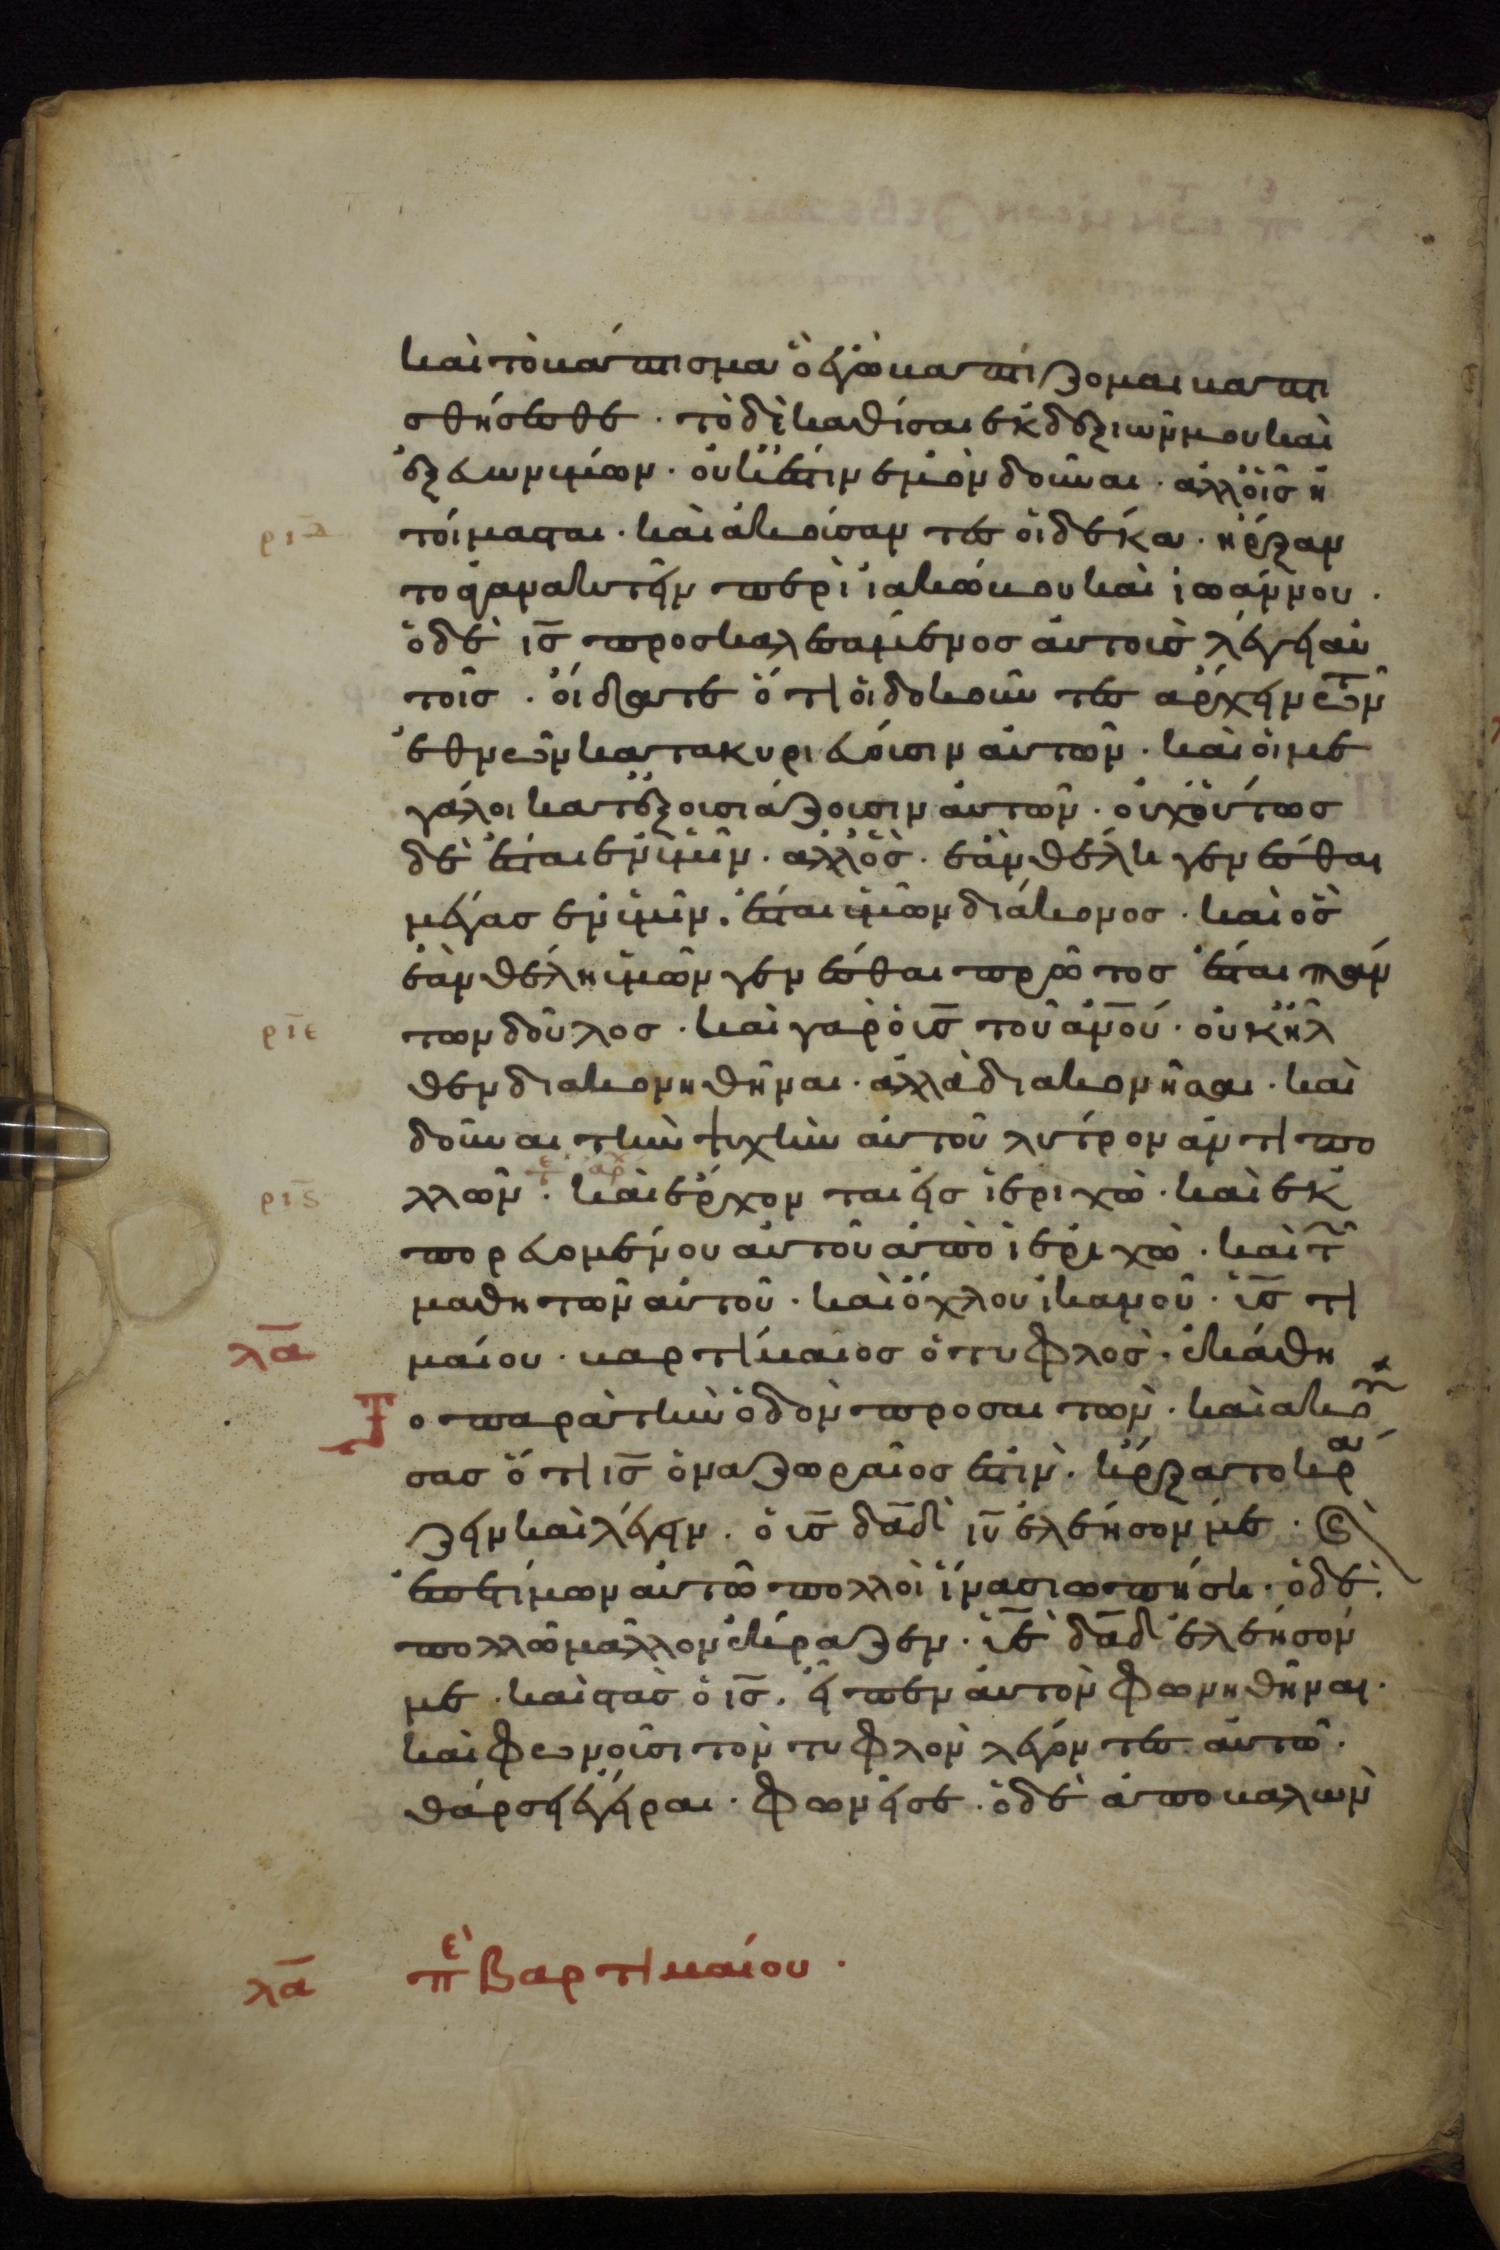 καὶ τὸ βάπτισμα ὃ ἐγὼ βαπτίζομαι βαπτι
σθήσεσθε · τὸ δὲ καθίσαι ἐκ δεξιῶν μου καὶ
ἐξ εὐωνύμων · οὐκ ἔστιν ἐμὸν δοῦναι · ἀλλ' οἷς ἡ
ριδ τοίμασται · καὶ ἀκούσαντες οἱ δέκα · ἤρξαν
το ἀγανακτεῖν περὶ ἰακώβου καὶ ἰωάννου ·
ὁ δὲ ις προσκαλεσάμενος αὐτοὺς λέγει αὐ
τοῖς · οἴδατε ὅτι οἱ δοκοῦντες ἄρχειν τῶν
ἐθνῶν κατακυριεύουσιν αὐτῶν · καὶ οἱ με
γάλοι κατεξουσιάζουσιν αὐτῶν · οὐχ οὕτως
δὲ ἔσται ἐν ὑμῖν · ἀλλ' ὃς · ἐὰν θέλη γενέσθαι
μέγας ἐν ὑμῖν · ἔσται ὑμῶν διάκονος · καὶ ὃς
ἐὰν θέλη ὑμῶν γενέσθαι πρῶτος ἔσται πάν
ριε των δοῦλος · καὶ γὰρ ὁ ις τοῦ ανου · οὐκ ἦλ
θεν διακονηθῆναι · ἀλλὰ διακονῆσαι · καὶ
δοῦναι τὴν ψυχὴν αὐτοῦ λύτρον ἀντὶ πο
ρις λλῶν · καὶ ἔρχονται εἰς ἱεριχὼ · καὶ ἐκ
πορευομένου αὐτοῦ ἀπὸ ἱεριχὼ · καὶ τ
μαθητῶν αὐτοῦ · καὶ ὄχλου ἱκανοῦ · υς τι
λα μαίου · βαρτίμαιος ὁ τυφλὸς · ἐκάθη
Το παρὰ τὴν ὁδὸν προσαιτῶν · καὶ ἀκού
σας ὅτι ις ὁ ναζωραῖος ἐστιν · ἤρξατο κρά
ζειν καὶ λέγειν · ὁ υς δαδ ιυ ἐλέησόν με · καὶ
ἐπετίμων αὐτῶ πολλοὶ ἵνα σιωπήση · ὁ δὲ
πολλῶ μᾶλλον ἔκραζεν · υε δαδ ἐλέησόν
με · καὶ στὰς ὁ ις · εἶπεν αὐτὸν φωνηθῆναι ·
καὶ φωνοῦσι τὸν τυφλὸν λέγοντες αὐτῶ ·
θάρσει ἔγειραι · φωνεῖ σε · ὁ δὲ ἀποβαλὼν
λα πε βαρτιμαίου ·